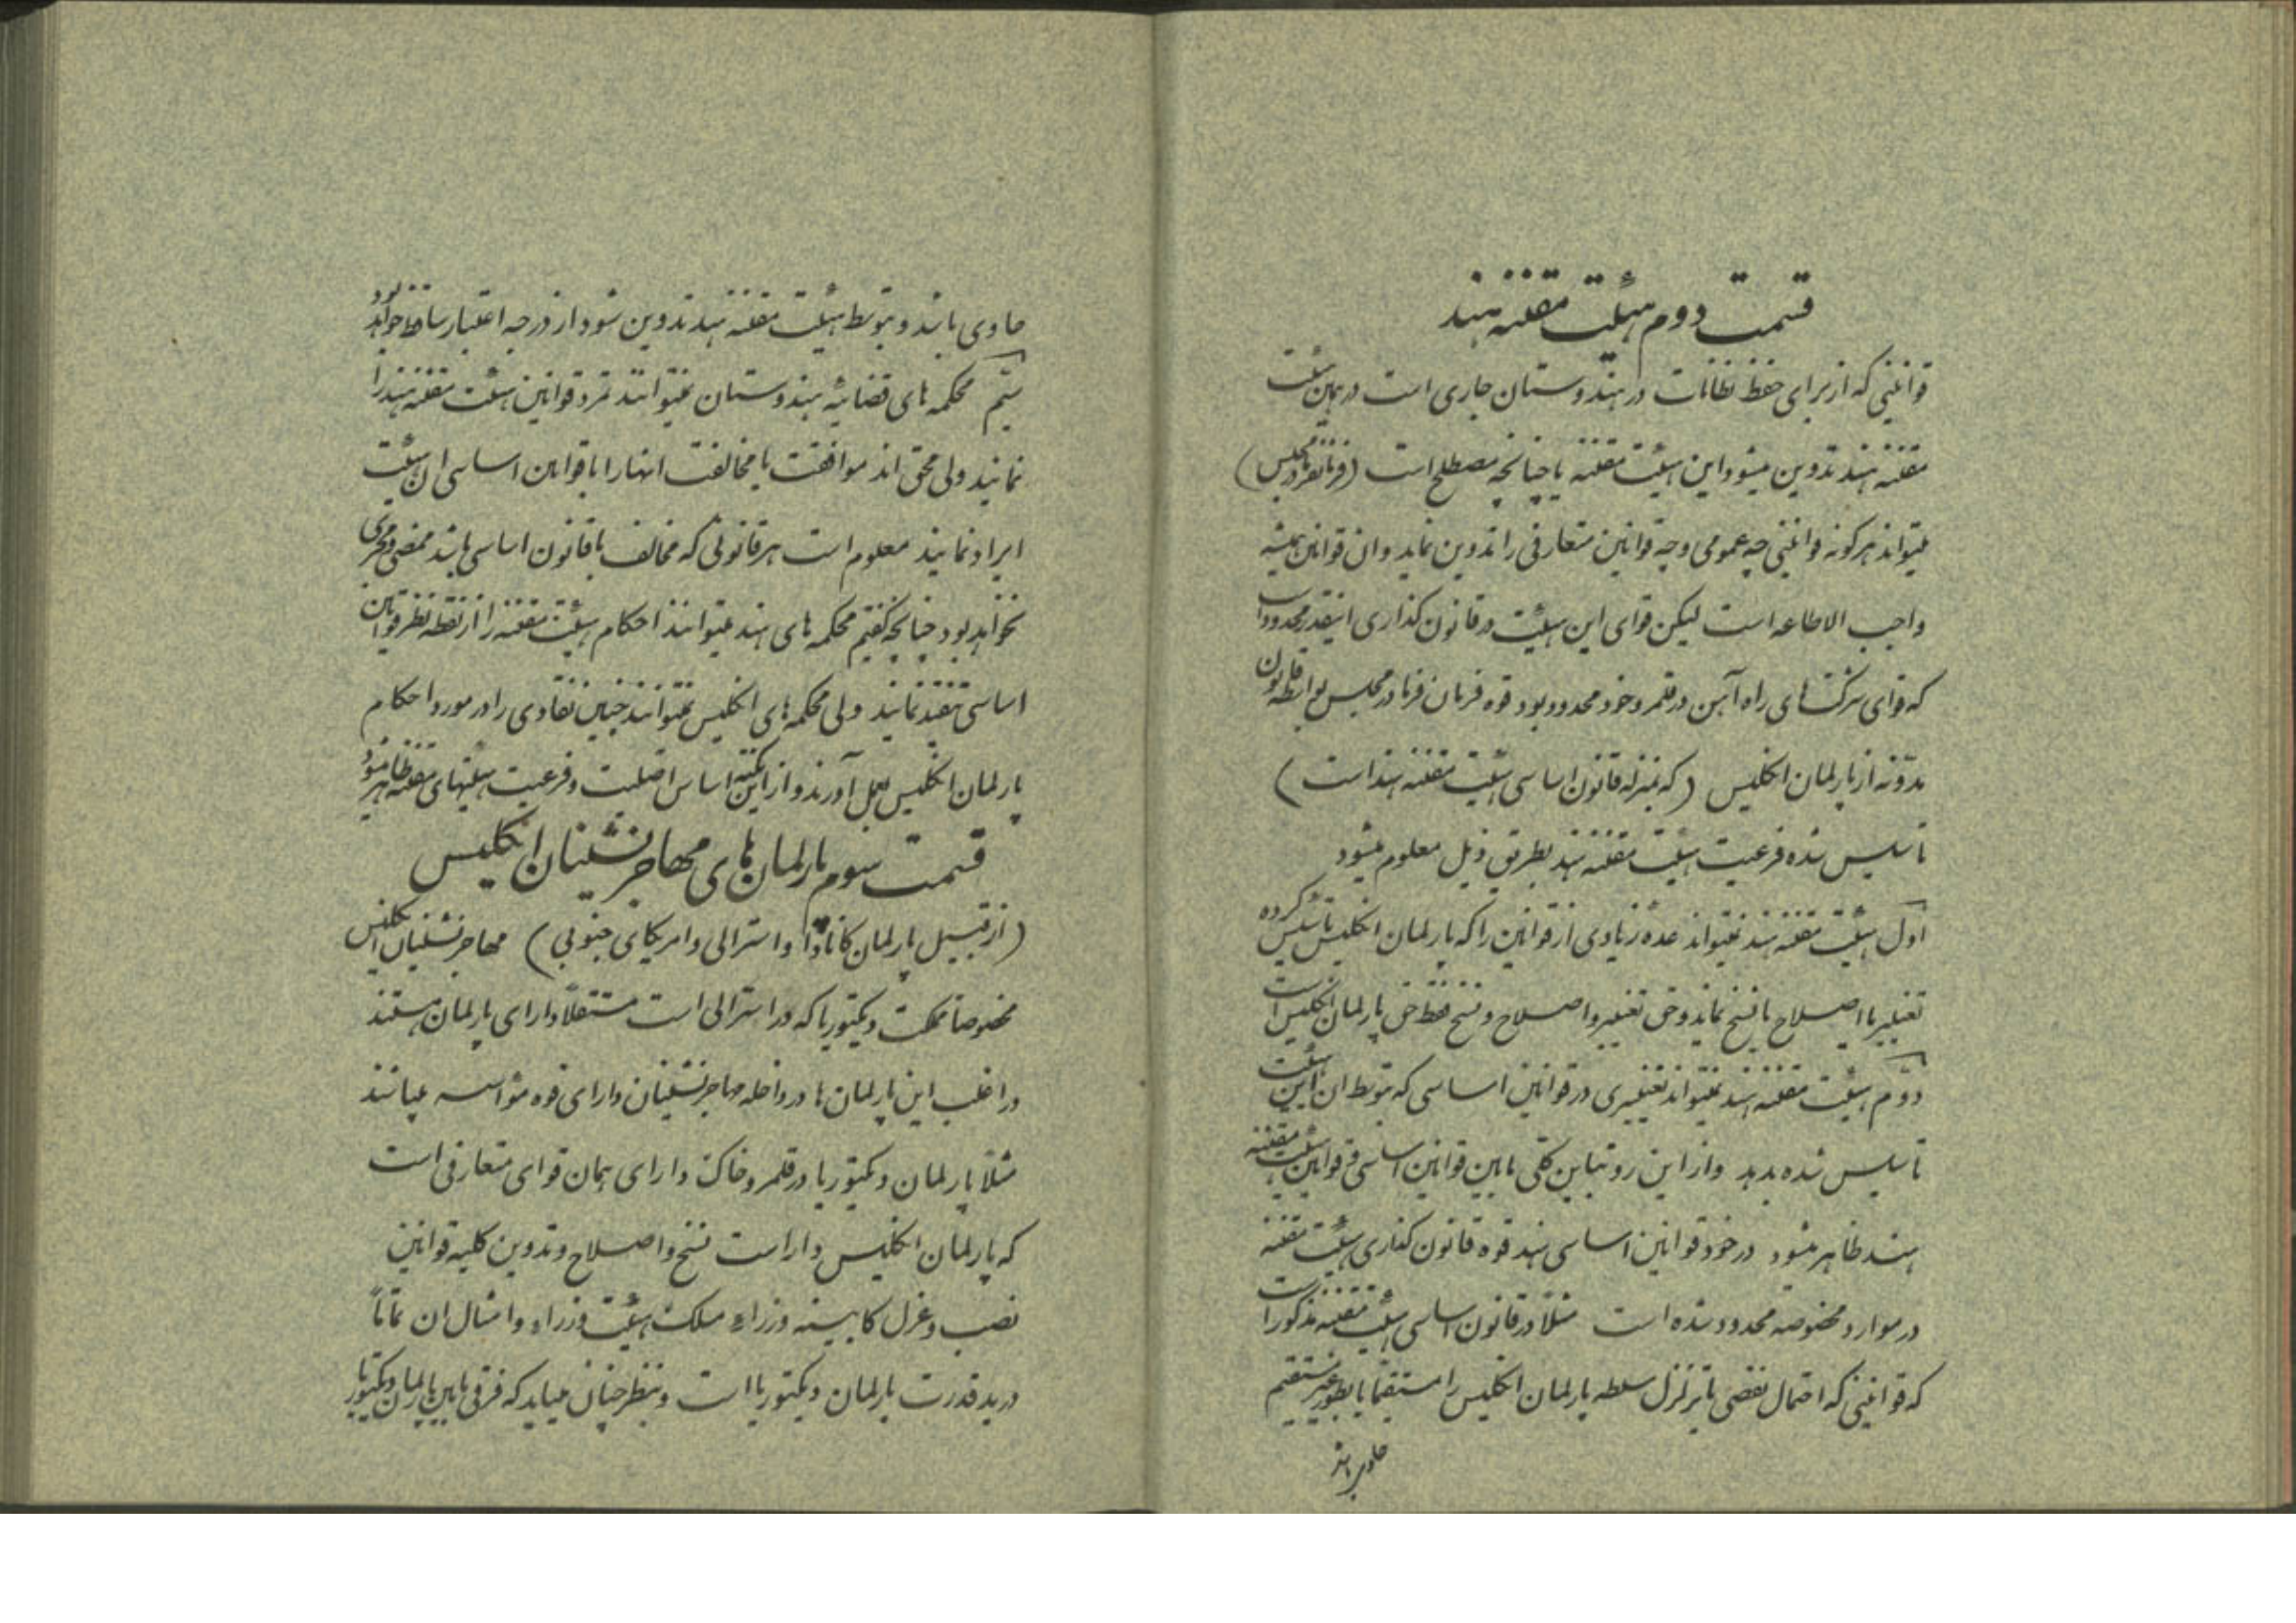 قسمت دوم هیئت مقننه هند
قوانینی که از برای حفظ نظامات در هندوستان جاری است در همین هیئت
مقننه هند تدوین میشود این هیئت مقننه یا چنانچه مصطلح است (فرمانفرما در مجلس)
میتواند هرکونه قوانینی چه عمومی و چه قوانین متعارفی را تدوین نماید و ان قوانین همیشه
واجب الاطاعه است لیکن قوای این هیئت در قانون کذاری اینقدر محدود است
که قوای شرکتهای راه آهن در قلمرو خود محدود بود قوه فرمان فرما در مجلس بواسطه قانون
مدونه از پارلمان انکلیس (که بمنزله قانون اساسی هیئت مقننه هند است)
تاسیس شده فرعیت هیئت مقننه هند بطریق ذیل معلوم میشود
اول هیئت مقننه هند نمیتواند عده زیادی از قوانین را که پارلمان انکلیس تاسیس کرده
تغییر یا اصلاح یا نسخ نماید و حق تغییر و اصلاح و نسخ فقط حق پارلمان انکلیس است
دوم هیئت مقننه هند نمیتواند تغییری در قوانین اساسی که بتوسط ان این هیئت
تاسیس شده بدهد و از این رو تباین کلی مابین قوانین اساسی و قوانین هیئت مقننه
هند ظاهر میشود در خود قوانین اساسی هند قوه قانون کذاری هیئت مقننه
در موارد مخصوصه محدود شده است مثلاً در قانون اساسی هیئت مقننه مذکور است
که قوانینی که احتمال نقضی یا تزلزل سلطه پارلمان انکلیس را مستقیماً یا بطور غیر مستقیم
حاوی باشد
حاوی باشد و بتوسط هیئت مقننه هند تدوین شود از درجه اعتبار ساقط خواهد بود
سیم محکمه های قضائیه هندوستان نمیتوانند تمرد قوانین هیئت مقننه هند را
نمایند ولی محق اند موافقت یا مخالفت انها را با قوانین اساسی ان هیئت
ایراد نمایند معلوم است هر قانونی که مخالف با قانون اساسی باشد ممضی و مجری
نخواهد بود چنانچه کفتیم محکمه های هند میتوانند احکام هیئت مقننه را از نقطه نظر قوانین
اساسی تنقید نمایند ولی محکمه های انکلیس نمیتوانند چنین نقادی را در مورد احکام
پارلمان انکلیس بعمل آورند و از این نکته اساس اصلیت و فرعیت هیئتهای مقننه ظاهر میشود
قسمت سوم پارلمان های مهاجرنشینان انکلیس
(از قبیل پارلمان کانادا و استرالی و امریکای جنوبی) مهاجرنشینان انکلیس
مخصوصاً مملکت ویکتوریا که در استرالی است مستقلاً دارای پارلمان هستند
و راغلب این پارلمان ها در داخله مهاجرنشینان دارای قوه مؤسسه میباشند
مثلاً پارلمان ویکتوریا در قلمرو خاک دارای همان قوای متعارفی است
که پارلمان انکلیس داراست نسخ و اصلاح و تدوین کلیه قوانین
نصب و عزل کابینه وزراء مسلک هیئت وزراء و امثال ان تماماً
در ید قدرت پارلمان ویکتوریا است و بنظر چنان میاید که فرقی مابین پارلمان ویکتوریا